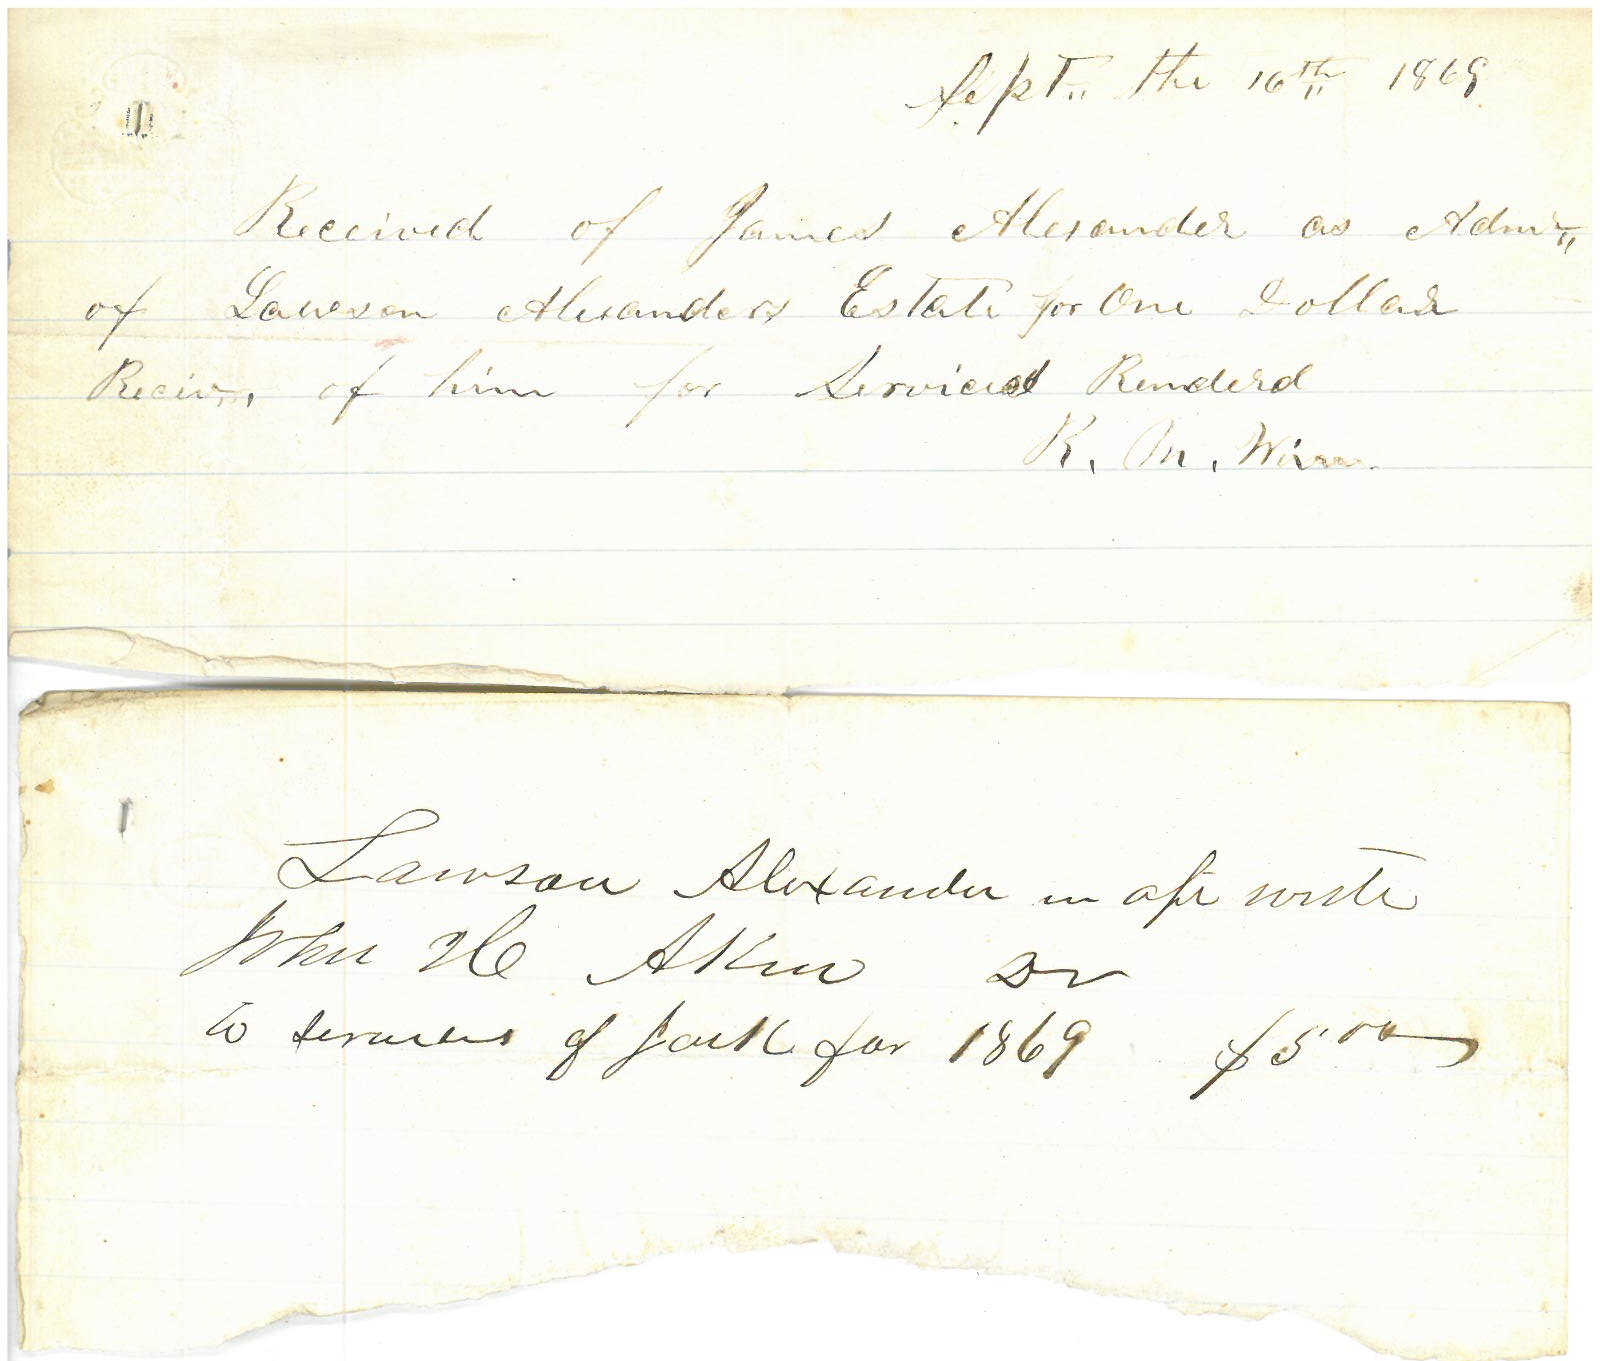 Sept. the 16th 1869
Received of James Alexander as Admr.
of Lawson Alexanders Estate for One Dollar
Receiv. of him for Services Renderd
R. M. Winn.
Lawson Alexander in a/c with
John H Akin Dr
to services of Jack for 1869 $5.00